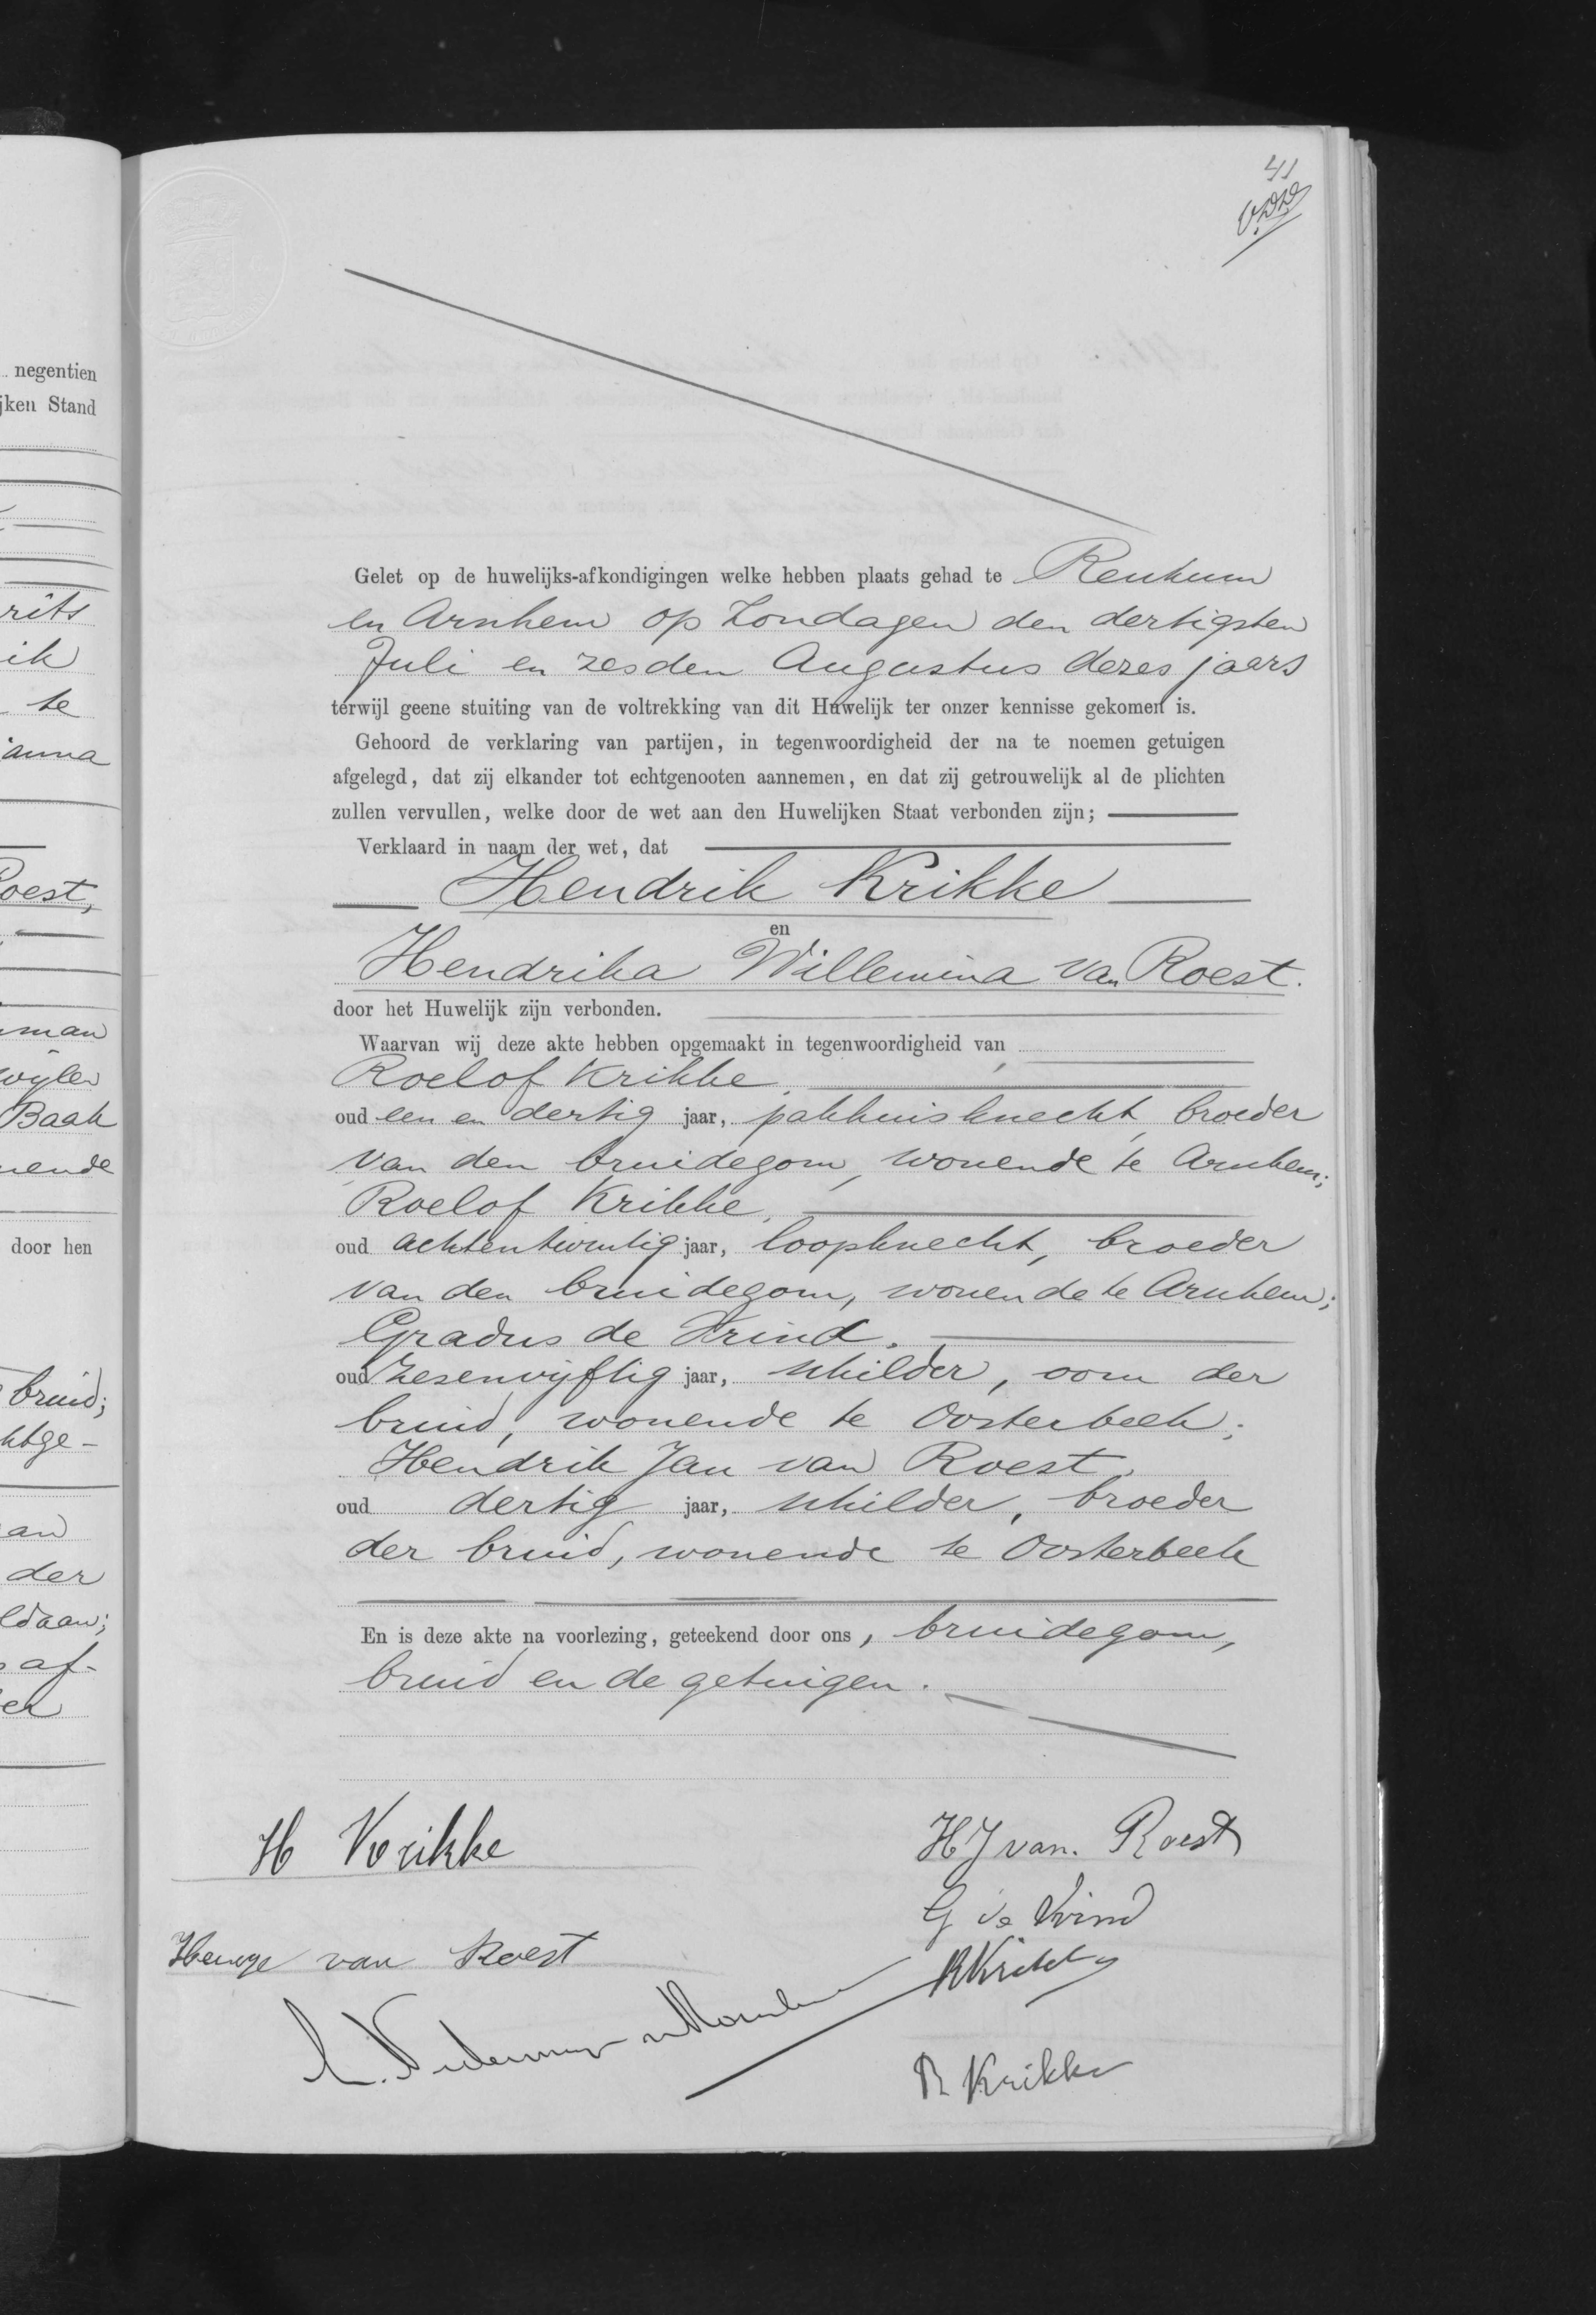 negentien
jken Stand
rits
ik
te
anna
oest,
man
wylen
Baak
nende
door hen
bruid;
htge-
an
der
ldaan;
af-
er
41
Gelet op de huwelijks-afkondigingen welke hebben plaats gehad te Renkum
en Arnhem op Zondagen den dertigsten
Juli en zesden Augustus dezes jaars
terwijl geene stuiting van de voltrekking van dit Huwelijk ter onzer kennisse gekomen is.
Gehoord de verklaring van partijen, in tegenwoordigheid der na te noemen getuigen
afgelegd, dat zij elkander tot echtgenooten aannemen, en dat zij getrouwelijk al de plichten
zullen vervullen, welke door de wet aan den Huwelijken Staat verbonden zijn;
Verklaard in naam der wet, dat
Hendrik Krikke
en
Hendrika Willemina van Roest.
door het Huwelijk zijn verbonden.
Waarvan wij deze akte hebben opgemaakt in tegenwoordigheid van
Roelof Krikke,
oud een en dertig jaar, pakhuisknecht, broeder
van den bruidegom, wonende te Arnhem;
Roelof Krikke,
oud achtentwintig jaar, loopknecht, broeder
van den bruidegom, wonende te Arnhem;
Gradus de Vrind.
oud zesenvyftig jaar, schilder, oom der
bruid, wonende te Oosterbeek;
Hendrik Jan van Roest,
oud dertig jaar, schilder, broeder
der bruid, wonende te Oosterbeek
En is deze akte na voorlezing, geteekend door ons, bruidegom,
bruid en de getuigen.
H Krikke
H J van. Roest
G de Vrind
van Roest
R Krikke
R Krikke